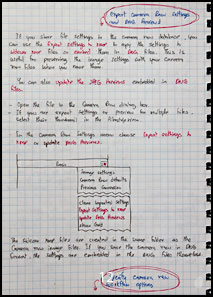 Export Camera Raw settings
and DNG Previews
If you store file settings in the Camera raw database, you
can use the Export Settings to XMP to copy the settings to
sidecar XMP files or embed them in DNG files. This is
useful for preserving the image settings with your Camera
raw files when you move them
You can also update the JPEG Previews embedded in DNG
files.
- Open the file in the Camera Raw dialog box.
- If you are export settings or preview for multiple files,
Select their thumbnail in the Filmstrip view
- In the Camera Raw settings menu choose Export settings to
XMP or update DNG Previews.
Basic
Image settings
Camera Raw Defaults
Previous Conversion
Export Settings to XMP
Update DNG Previews
The sidecar XMP files are created in the same folder as the
Camera raw image files. If you save the camera raw in DNG
format, the settings are embedded in the DNG files themselves
Camera raw
workflow options